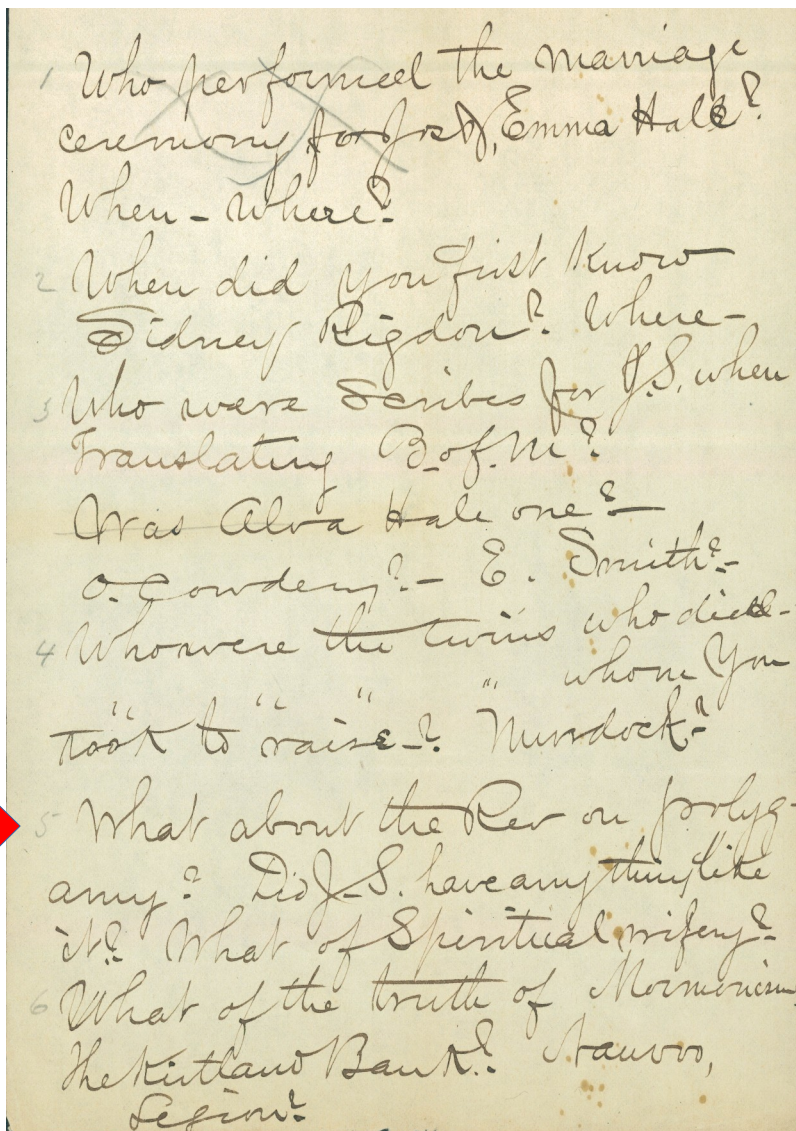 1 Who performed the marriage
ceremony for Jos &, Emma Hale?
When - where?
2 When did you first know
Sidney Rigdon? Where -
3 Who were scribes for J.S. when
Translating B. of. M?
Was Alva Hale one? -
O. Cowdery? - E. Smith? -
4 Who were the twins who died -
" " " " whom You
took to raise -? Murdock?
5 What about the Rev on polyg-
amy? Did J.S. have anything like
it? What of Spiritual wifery? -
6 What of the truth of Mormonism,
The Kirtland Bank? Nauvoo,
Legion?